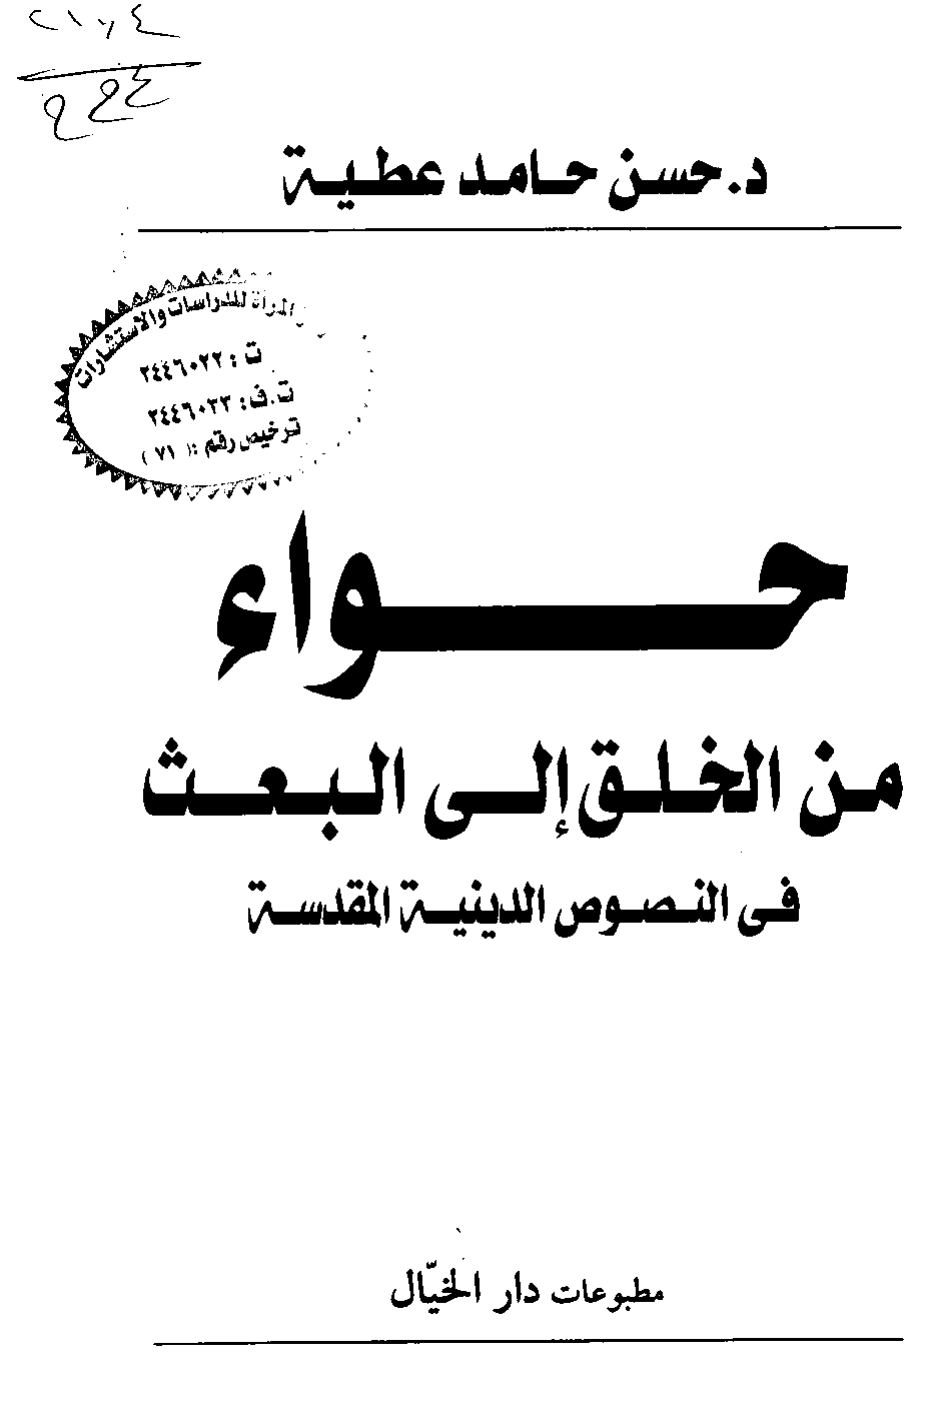 د. حسن حامد عطية
المرأة للدراسات والاستشارات
ت : ٢٤٤٦٠٢٢
ت.ف : ٢٤٤٦٠٢٣
ترخيص رقم : ( ٧١ )
حـــواء
من الخلق إلى البعث
فى النصوص الدينية المقدسة
مطبوعات دار الخيّال